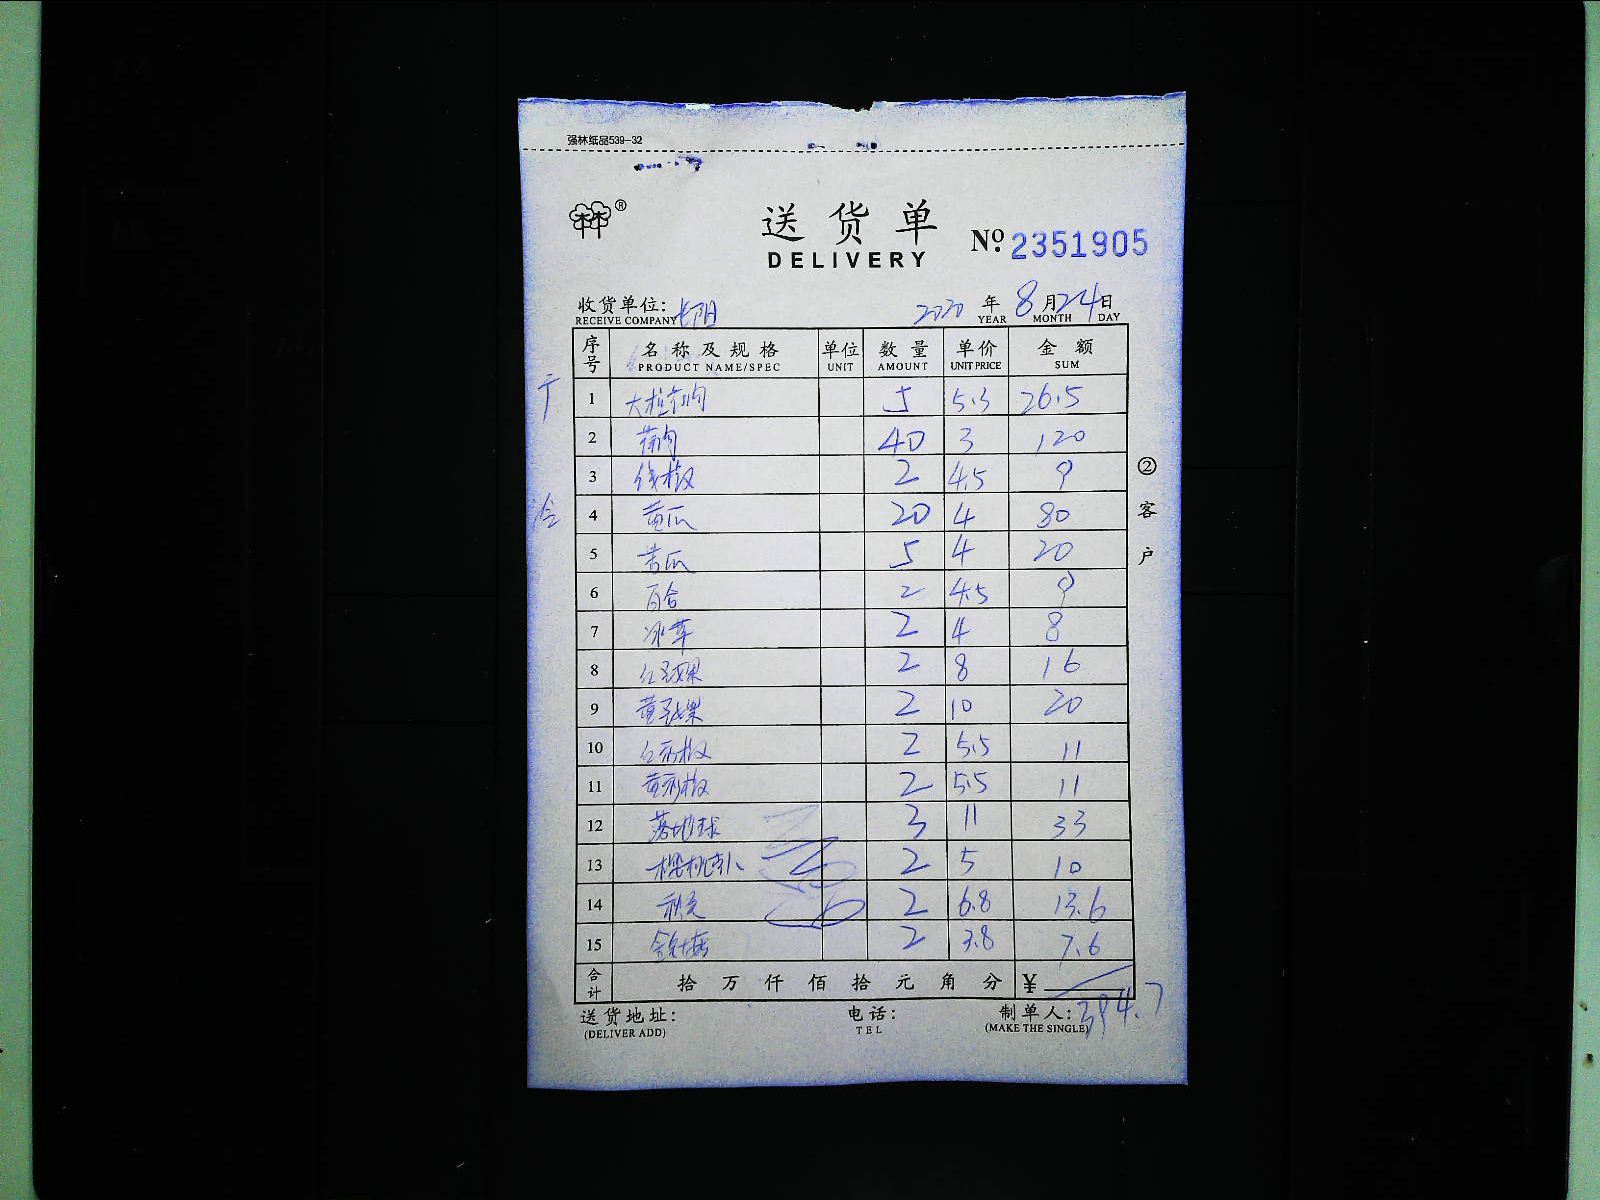 强林纸品539-32
®
送货单
DELIVERY
№ 2351905
收货单位: 长阳 2020 年 8 月 24 日
RECEIVE COMPANY YEAR MONTH DAY
序号 名称及规格 单位 数量 单价 金额
PRODUCT NAME/SPEC UNIT AMOUNT UNIT PRICE SUM
1 5 5.3 26.5
2 40 3 120
3 线椒 2 4.5 9
4 黄瓜 20 4 80
5 苦瓜 5 4 20
6 百合 2 4.5 9
7 冰草 2 4 8
8 2 8 16
9 2 10 20
10 红彩椒 2 5.5 11
11 黄彩椒 2 5.5 11
12 落地球 3 11 33
13 樱桃卜 2 5 10
14 秋元 2 6.8 13.6
15 2 3.8 7.6
合计 拾 万 仟 佰 拾 元 角 分 ¥ 394.7
送货地址: 电话: 制单人:
(DELIVER ADD) TEL (MAKE THE SINGLE)
② 客户